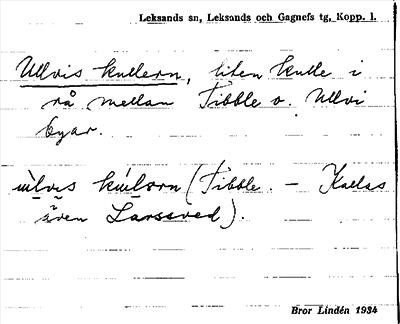 Leksands sn, Leksands och Gagnefs tg, Kopp. l.
Ullvis kullern, liten kulle i
rå mellan Tibble o. Ullvi
byar.
(Tibble. – Kallas
även Larssved).
Bror Lindén 1934